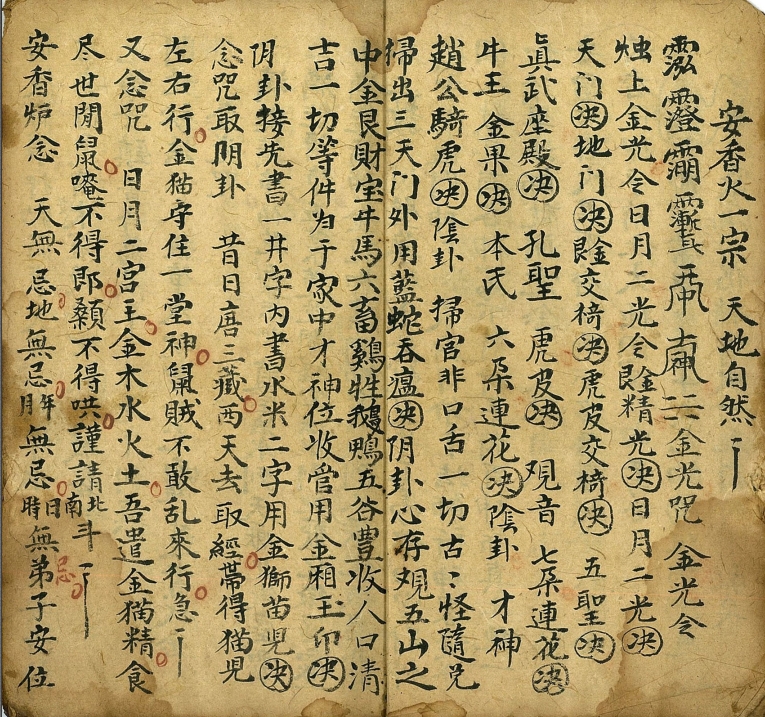 安香火一宗 天地自然
金光咒 金光令
灺上金光令日月二光令睑精光決日月二光決
天门決地门決睑交椅決虎皮交椅決 五聖決
眞武座殿決 孔聖 虎皮決 观音 七朶連花決
牛王 金果決 本氏 六朶連花決陰卦 才神
趙公騎虎決陰卦 掃官非口舌一切古々怪隨兑
掃出三天门外用蓝蛇吞瘟決阴卦心存观五山之
中金艮財宝牛馬六畜鷄牲鵝鴨五谷豊收人口清
吉一切等件为于家中才神位收管用金厢玉印決
阴卦接先書一井字内書水米二字用金獅苗児決
念咒取阴卦 昔日唐三藏西天去取經帶得猫児
左右行金猫守住一堂神鼠賊不敢乱來行急
又念咒 日月二宫主金木水火土吾遣金猫精食
尽世間鼠唵不得郎顙不得哄謹請南北斗
安香炉念 天無忌地無忌年月無忌日時無忌弟子安位